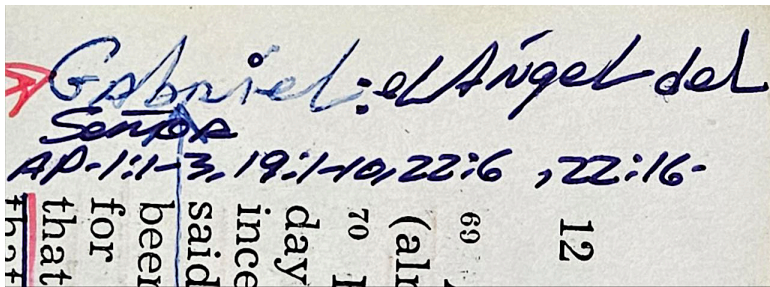 Gabriel: el Ángel del
Señor
AP-1:1-3, 19:1-10, 22:6, 22:16-
12
69
(alr
70
day
ince
said
been
for
that
that